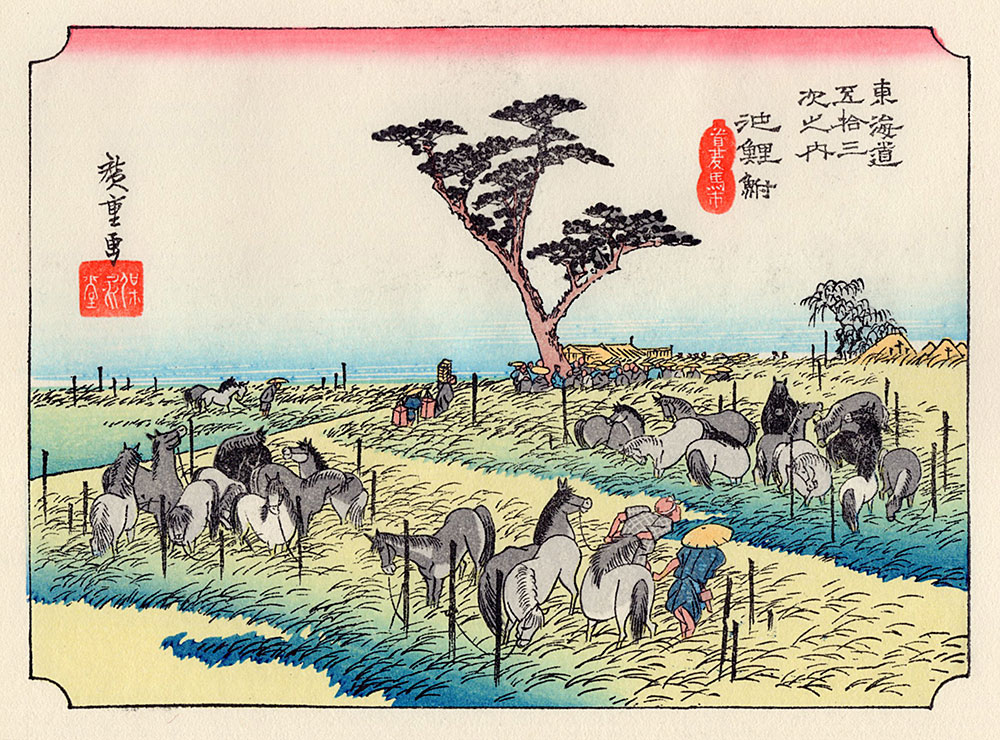 東海道
五拾三
次之内
池鯉鮒
首夏馬市
廣重画
保永堂